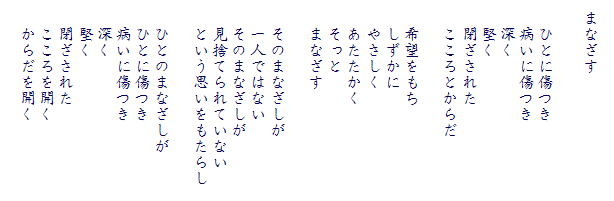 まなざす
ひとに傷つき
病いに傷つき
深く
堅く
閉ざされた
こころとからだ
希望をもち
しずかに
やさしく
あたたかく
そっと
まなざす
そのまなざしが
一人ではない
そのまなざしが
見捨てられていない
という思いをもたらし
ひとのまなざしが
ひとに傷つき
病いに傷つき
深く
堅く
閉ざされた
こころを開く
からだを開く